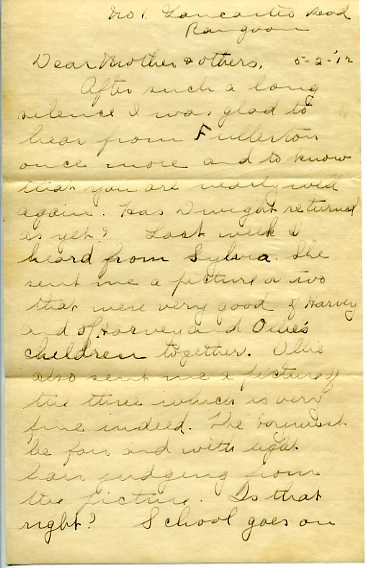 No 1 Lancaster Road
Rangoon
Dear Mother & others, 5-2-'12
After such a long
silence I was glad to
hear from Fullerton
once more and to know
that you are nearly well
again. Has Dwight returned
as yet? Last week I
heard from Sylvia. She
sent me a picture or two
that were very good of Harvey
and of Harvey and Ollie's
children together. Ollie
also sent me a picture of
the three which is very
fine indeed. The must
be fair and with light
hair judging from
the picture. Is that
right? School goes on